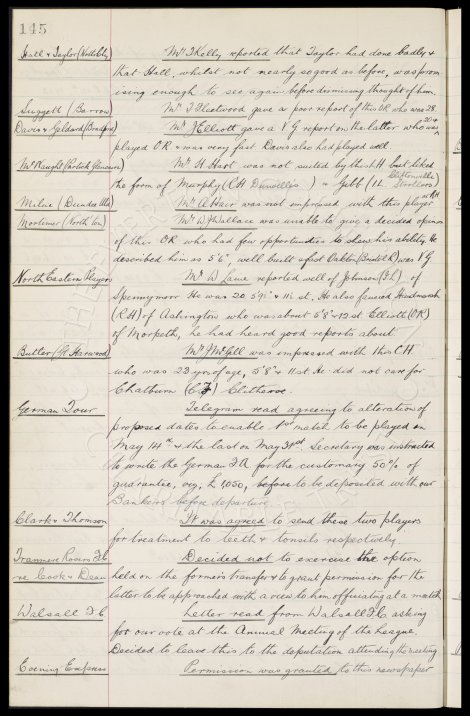 145
Hall & Taylor (Notts Cty) Mr T Kelly reported that Taylor had done badly &
that Hall, whilst not nearly so good as before, was prom
ising enough to see again before dismissing thought of him.
Suggett (Barrow Mr T Fleetwood gave a poor report of this OR who was 28.
Davis & Geldard (Bradford) Mr J Elliott gave a V G report on the latter who was 20 &
played OR & was very fast Davis also had played well
McNaught (Partick Mr H Hart was not suited by this LH but liked
the form of Murphy (RH ) & Gibb (IL
Milne (Dundee Utd) Mr A Hair was not impressed with this player as RH
Mortimer (North'ton) Mr W J Wallace was unable to give a decided opinion
of this OR who had few opportunities to show his ability He
described him as 5'6", well built & fast Oakton (Bristol R) was V G
North Eastern Players Mr W Lane reported well of Johnson (I L) of
Spennymoor He was 20. 5'9½" & 11½ st, He also favored Hindmarsh
(RH) of Ashington who was about 5'8" & 12 st Elliott (OR)
of Morpeth, he had heard good reports about
Butler (Gt Harwood) Mr J McGill was impressed with this CH
who was 23 yrs of age, 5'8" & 11 st He did not care for
Chatburn (CF) Clitheroe.
German Tour Telegram read agreeing to alteration of
proposed dates to enable 1st match to be played on
May 14th & the last on May 31st. Secretary was instructed
to write the German F.A. for the customary 50% of
guarantee, viz, £1050, before to be deposited with our
Bankers before departure
Clark & Thomson It was agreed to send these two players
for treatment to teeth & tonsils respectively
Tranmere Rovers F.C Decided not to exercise the option
re Cook & Dean held on the former's transfer & to grant permission for the
latter to be approached with a view to him officiating at a match
Walsall F.C Letter read from Walsall F.C. asking
for our vote at the Annual Meeting of the League.
Decided to leave this to the deputation attending the meeting
Evening Express Permission was granted to this newspaper